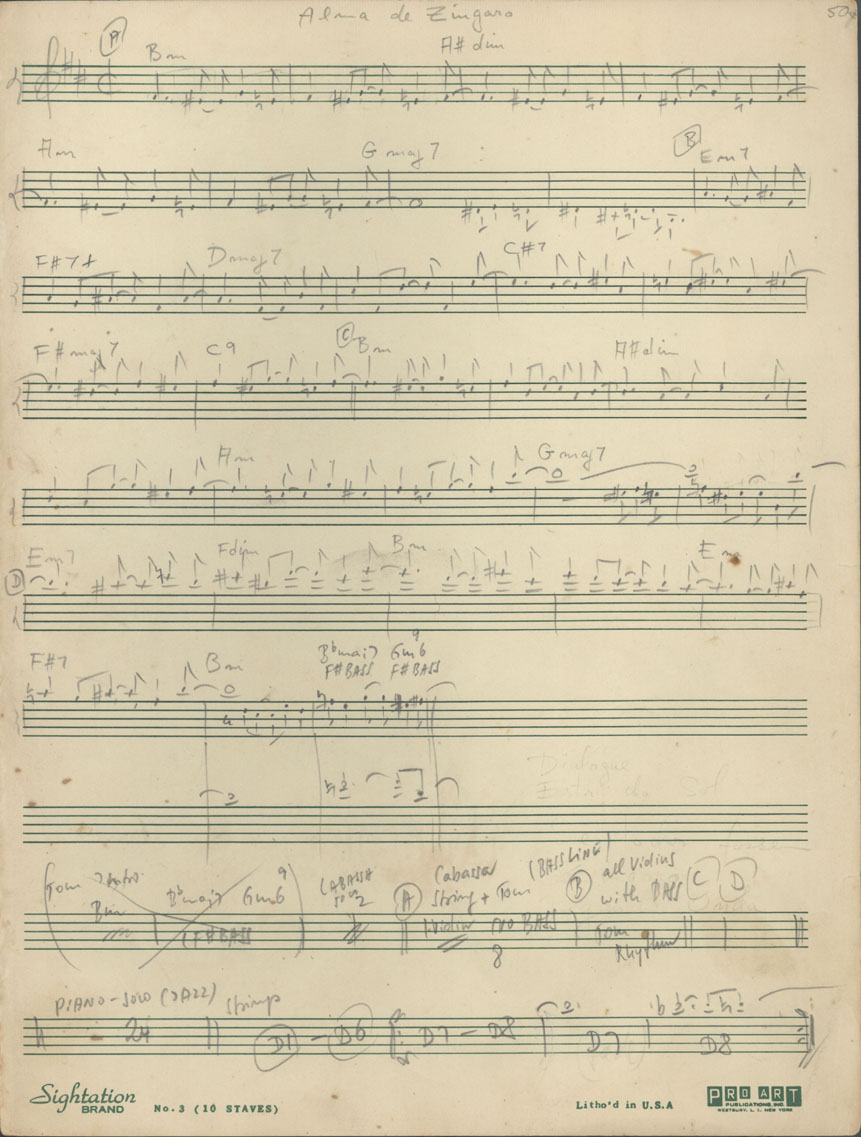 Alma de Zingaro
50
A
Bm A# dim
Am G maj 7 B Em7
F#7+ Dmaj7 C#7
F# maj 7 C9 C Bm A# dim
Am G maj 7
D Em7 Fdim Bm Em
F#7 Bm Bb maj7 Gm6 9
F# BASS F# BASS
Dialogue
Tom Intro
Bm Bb maj7 Gm6 9
(F# BASS
CABASSA
A Cabassa
String + Tom (BASS LINE)
B all Violins
with BASS C D
Violin NO BASS
8
Tom
Rhythm
PIANO-SOLO (JAZZ) Strings
24 D1 - D6 D7 - D8 D7 D8
Sightation
BRAND No. 3 (10 STAVES) Litho'd in U.S.A
PRO ART
PUBLICATIONS, INC.
WESTBURY, L. I., NEW YORK